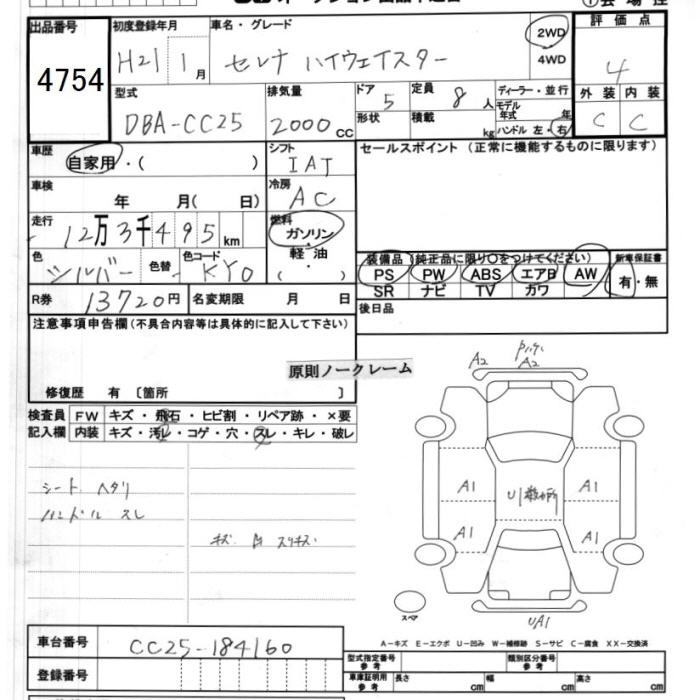 出品番号 初度登録年月 車名・グレード 2WD 評価点
4754 H21 1月 セレナ ハイウェイスター 4WD 4
型式 排気量 ドア 定員 ディーラー・並行 外装 内装
DBA-CC25 2000cc 5 8人 モデル年式 年 C C
形状 積載 kg ハンドル 左・右
車歴 シフト セールスポイント (正常に機能するものに限ります)
自家用・( ) IAT
車検 冷房
年 月( 日) AC
走行 燃料
12万3千495km ガソリン・
色 色替 色コード 軽油 装備品 (純正品に限り○をつけてください) 新車保証書
シルバー KY0 ・( ) PS PW ABS エアB AW 有・無
SR ナビ TV カワ
R券 13720円 名変期限 月 日 後日品
注意事項申告欄 (不具合内容等は具体的に記入して下さい)
原則ノークレーム
修復歴 有 〔箇所 〕
検査員 FW キズ・飛石・ヒビ割・リペア跡・×要
記入欄 内装 キズ・汚レ・コゲ・穴・スレ・キレ・破レ
シート ヘタリ
ハンドル スレ
A2 A2
A1 A1
A1 A1
UA1
スペア
車台番号 CC25-184160
A-キズ E-エクボ U-凹み W-補修跡 S-サビ C-腐食 XX-交換済
登録番号
型式指定番号 参考 類別区分番号 参考
車庫証明用 参考 長さ cm 幅 cm 高さ cm